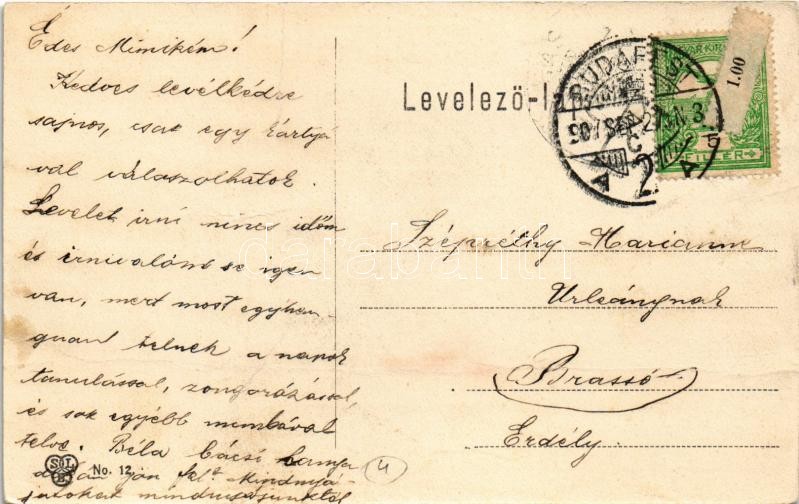 Édes Mimikém!
Kedves levélkédre
sajnos, csak egy kártyá
val válaszolhatok.
Levelet írni nincs időm
és írnivalóm se igen
van, mert most egyhan-
guan telnek a napok
tanulással, zongorázással,
és sok egyébb munkával
telve. Béla bácsi
Levelező-Lap
BUDAPEST
907 SZE
A 2 A
FILLÉR
1.00
Szépréthy Marianne
Urleánynak
Brassó
Erdély.
No. 12
4